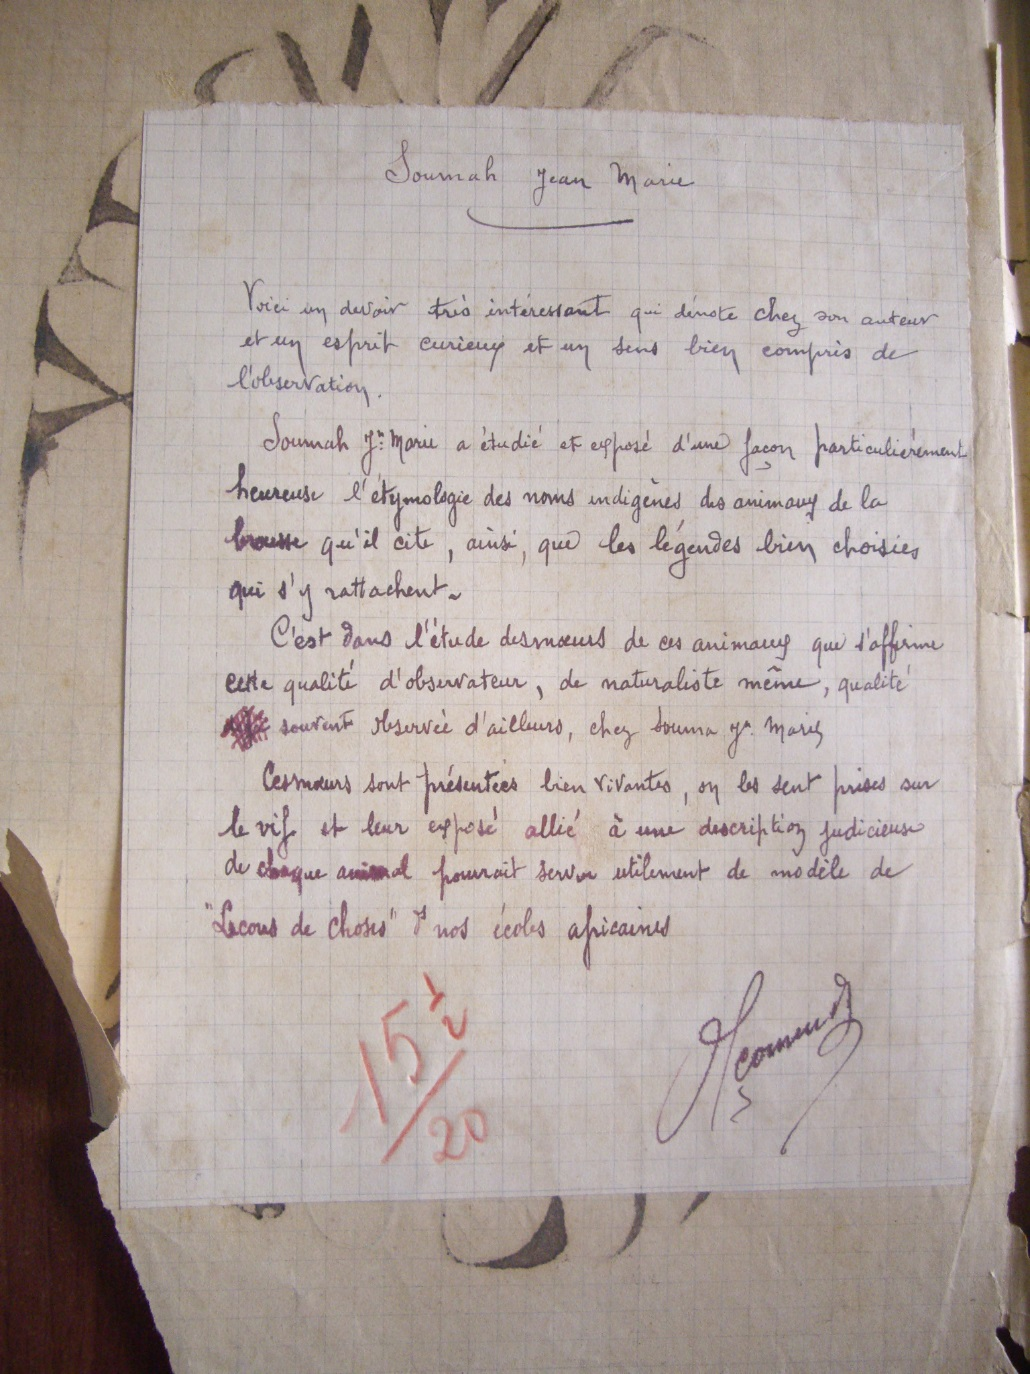 Soumah Jean Marie
Voici un devoir très intéressant qui dénote chez son auteur
et un esprit curieux et un sens bien compris de
l'observation.
Soumah Jn Marie a étudié et exposé d'une façon particulièrement
heureuse l'étymologie des noms indigènes des animaux de la
brousse qu'il cite, ainsi, que les légendes bien choisies
qui s'y rattachent.
C'est dans l'étude des mœurs de ces animaux que s'affirme
cette qualité d'observateur, de naturaliste même, qualité
souvent observée d'ailleurs, chez Souma Jn. Marie
Ces mœurs sont présentées bien vivantes, on les sent prises sur
le vif et leur exposé allié à une description judicieuse
de chaque animal pourrait servir utilement de modèle de
"Leçons de choses" ds nos écoles africaines
15 1/2
/20